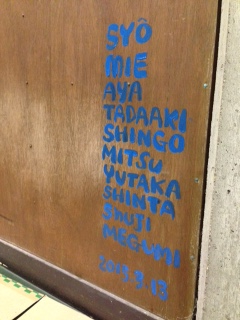 SYŌ
MIE
AYA
TADAAKI
SHINGO
MITSU
YUTAKA
SHINTA
SHUJI
MEGUMI
2013.3.13